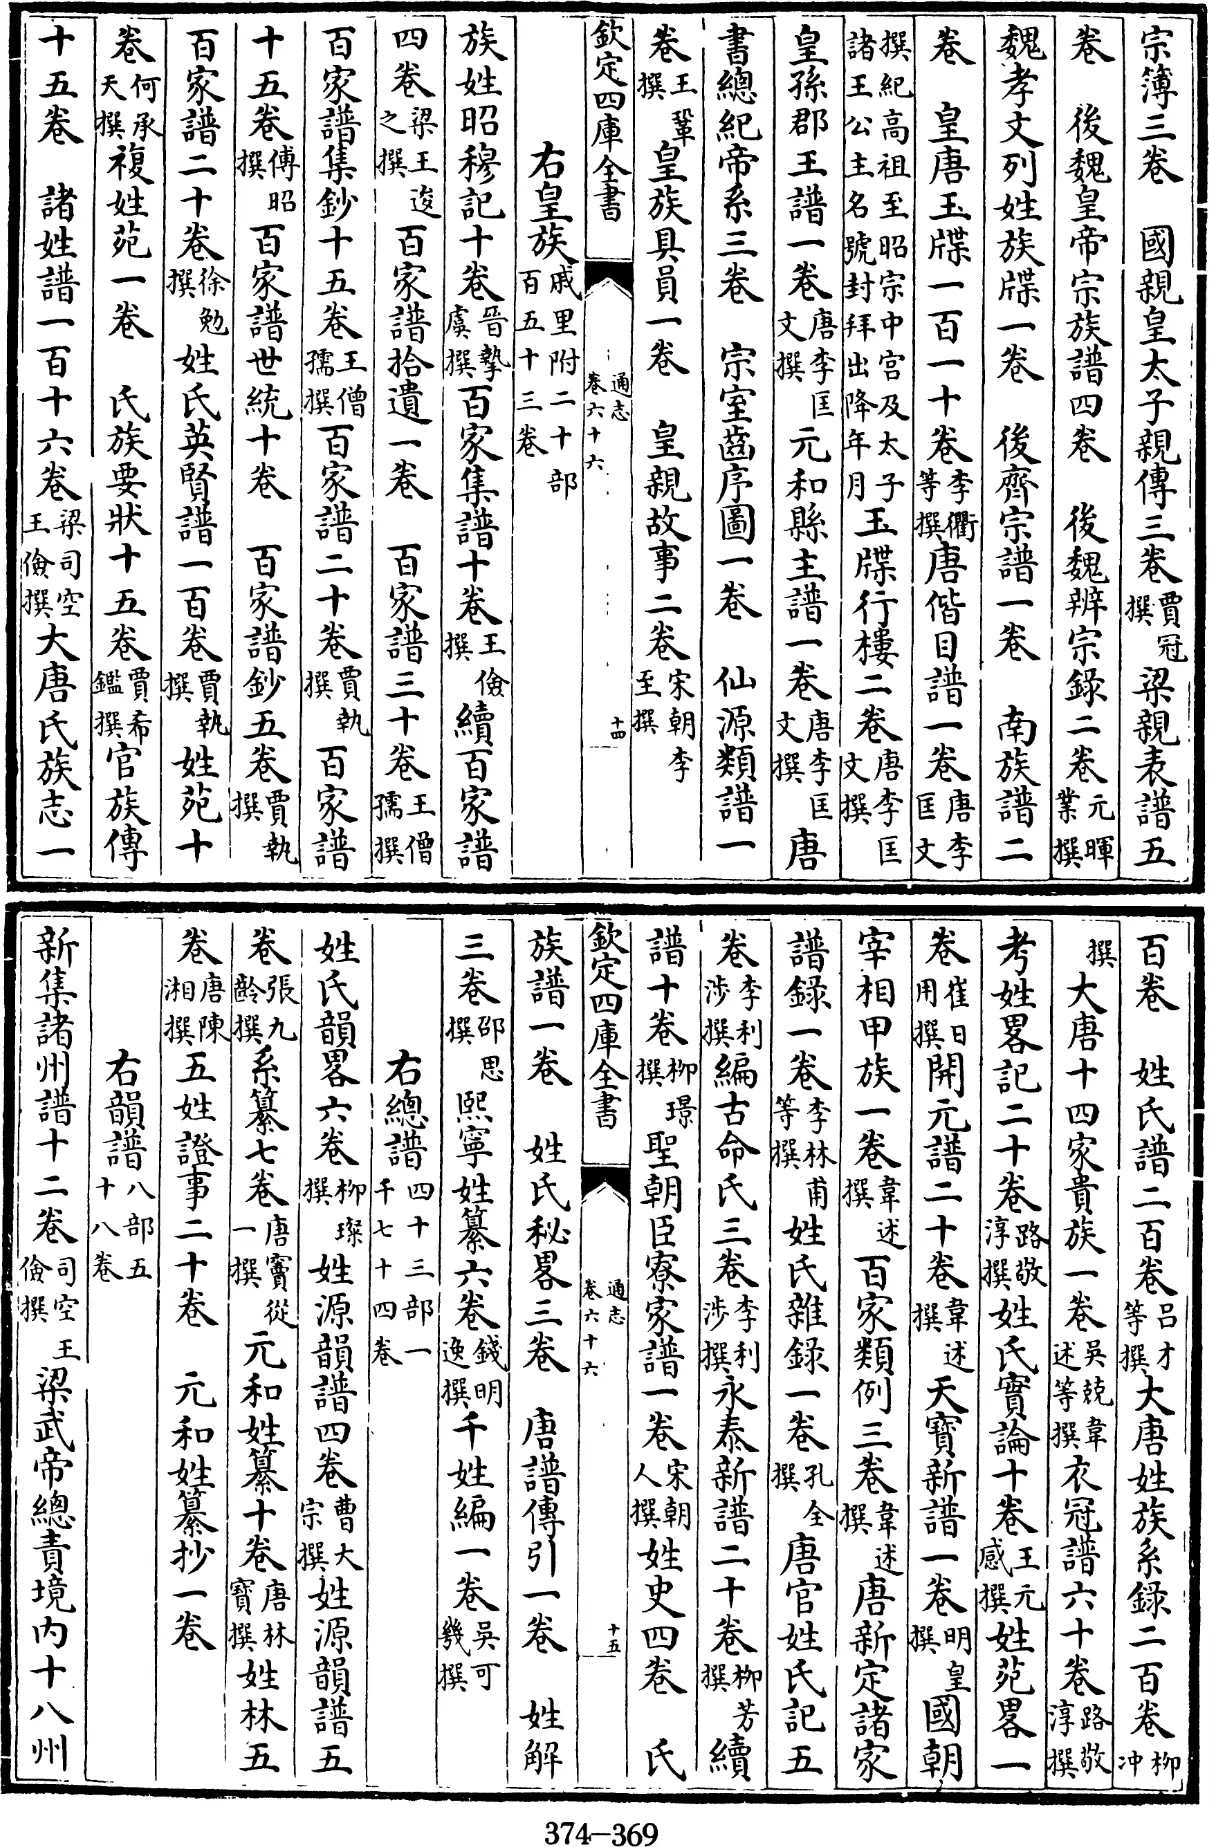 宗簿三卷　國親皇太子親傳三卷賈冠撰梁親表譜五
卷　後魏皇帝宗族譜四卷　後魏辨宗録二卷元暉業撰
魏孝文列姓族牒一卷　後齊宗譜一卷　南族譜二
卷　皇唐玉牒一百一十卷李衢等撰唐偕日譜一卷唐李匡文
撰紀高祖至昭宗中宫及太子諸王公主名號封拜出降年月玉牒行樓二卷唐李匡文撰
皇孫郡王譜一卷唐李匡文撰元和縣主譜一卷唐李匡文撰唐
書總紀帝系三卷　宗室齒序圖一卷　仙源類譜一
卷王鞏撰皇族具員一卷　皇親故事二卷宋朝李至撰
欽定四庫全書　通志卷六十六　十四
右皇族戚里附二十部百五十三卷
族姓昭穆記十卷晉摯虞撰百家集譜十卷王儉撰續百家譜
四卷梁王逡之撰百家譜拾遺一卷　百家譜三十卷王僧孺撰
百家譜集鈔十五卷王僧孺撰百家譜二十卷賈執撰百家譜
十五卷傅昭撰百家譜世統十卷　百家譜鈔五卷賈執撰
百家譜二十卷徐勉撰姓氏英賢譜一百卷賈執撰姓苑十
卷何承天撰複姓苑一卷　氏族要狀十五卷賈希鑑撰官族傳
十五卷　諸姓譜一百十六卷梁司空王儉撰大唐氏族志一
百卷　姓氏譜二百卷吕才等撰大唐姓族系錄二百卷柳冲
撰大唐十四家貴族一卷吳兢韋述等撰衣冠譜六十卷路敬淳撰
考姓畧記二十卷路敬淳撰姓氏實論十卷王元感撰姓苑畧一
卷崔日用撰開元譜二十卷韋述撰天寶新譜一卷明皇撰國朝
宰相甲族一卷韋述撰百家類例三卷韋述撰唐新定諸家
譜錄一卷李林甫等撰姓氏雜錄一卷孔至撰唐官姓氏記五
卷李利涉撰編古命氏三卷李利涉撰永泰新譜二十卷柳芳撰續
譜十卷柳璟撰聖朝臣寮家譜一卷宋朝人撰姓史四卷　氏
欽定四庫全書　通志卷六十六　十五
族譜一卷　姓氏秘畧三卷　唐譜傳引一卷　姓解
三卷邵思撰熙寧姓纂六卷錢明逸撰千姓編一卷吳可幾撰
右總譜四十三部一千七十四卷
姓氏韻畧六卷柳璨撰姓源韻譜四卷曹大宗撰姓源韻譜五
卷張九齡撰系纂七卷唐竇從一撰元和姓纂十卷唐林寶撰姓林五
卷唐陳湘撰五姓證事二十卷　元和姓纂抄一卷
右韻譜八部五十八卷
新集諸州譜十二卷司空王儉撰梁武帝總責境内十八州
374—369